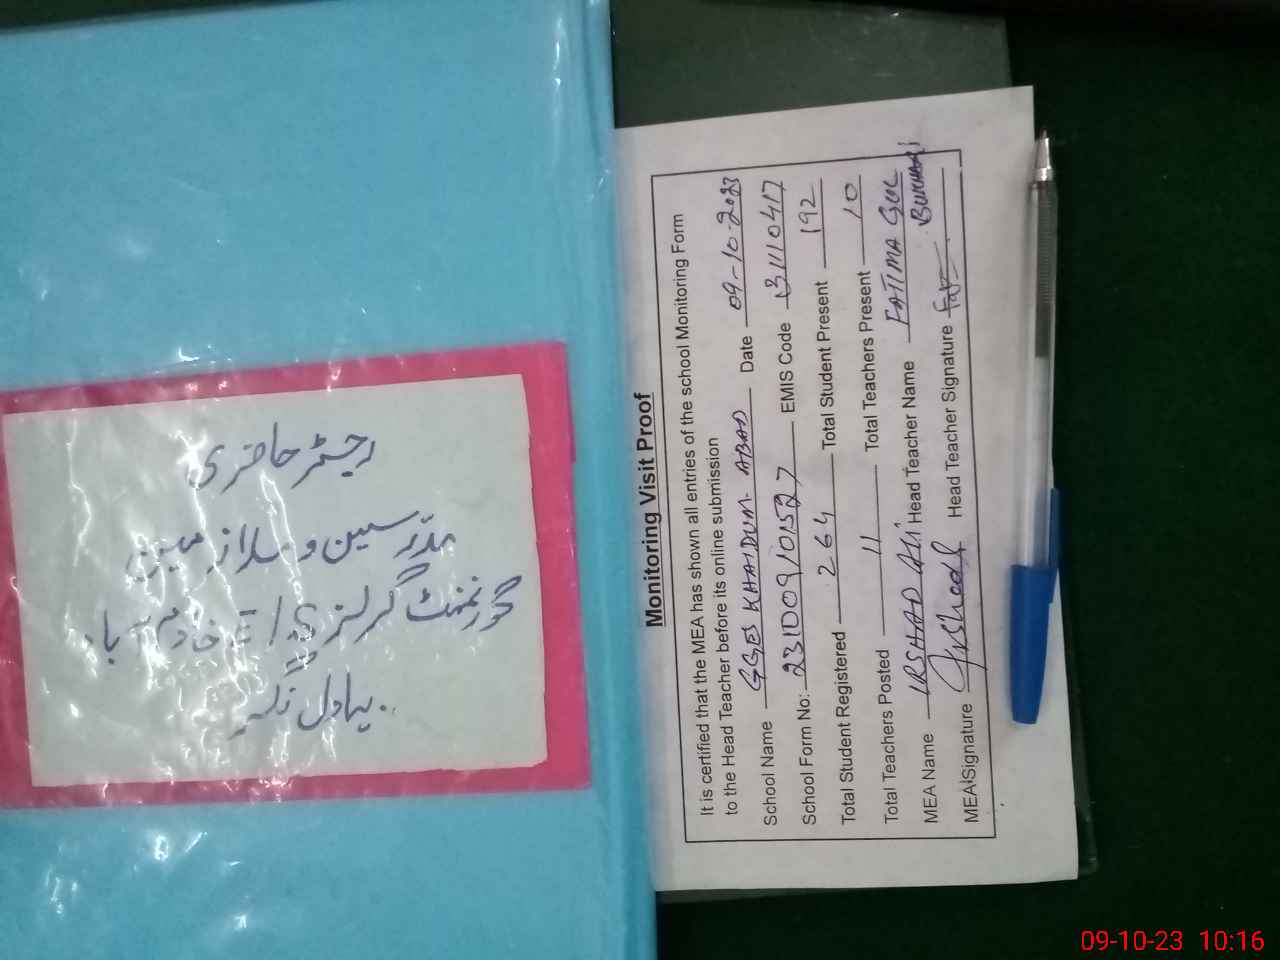 رجسٹر حاضری
مدرّسین و ملازمین
گورنمنٹ گرلز ای/ایس خادم آباد
بہاول نگر
Monitoring Visit Proof
It is certified that the MEA has shown all entries of the school Monitoring Form
to the Head Teacher before its online submission
School Name GGES KHAIDUM-ABAD Date 09-10-2023
School Form No: 231009101527 EMIS Code 31110417
Total Student Registered 264 Total Student Present 192
Total Teachers Posted 11 Total Teachers Present 10
MEA Name IRSHAD ALI Head Teacher Name FATIMA GUL BUKHARI
MEA Signature Irshad Head Teacher Signature
09-10-23 10:16